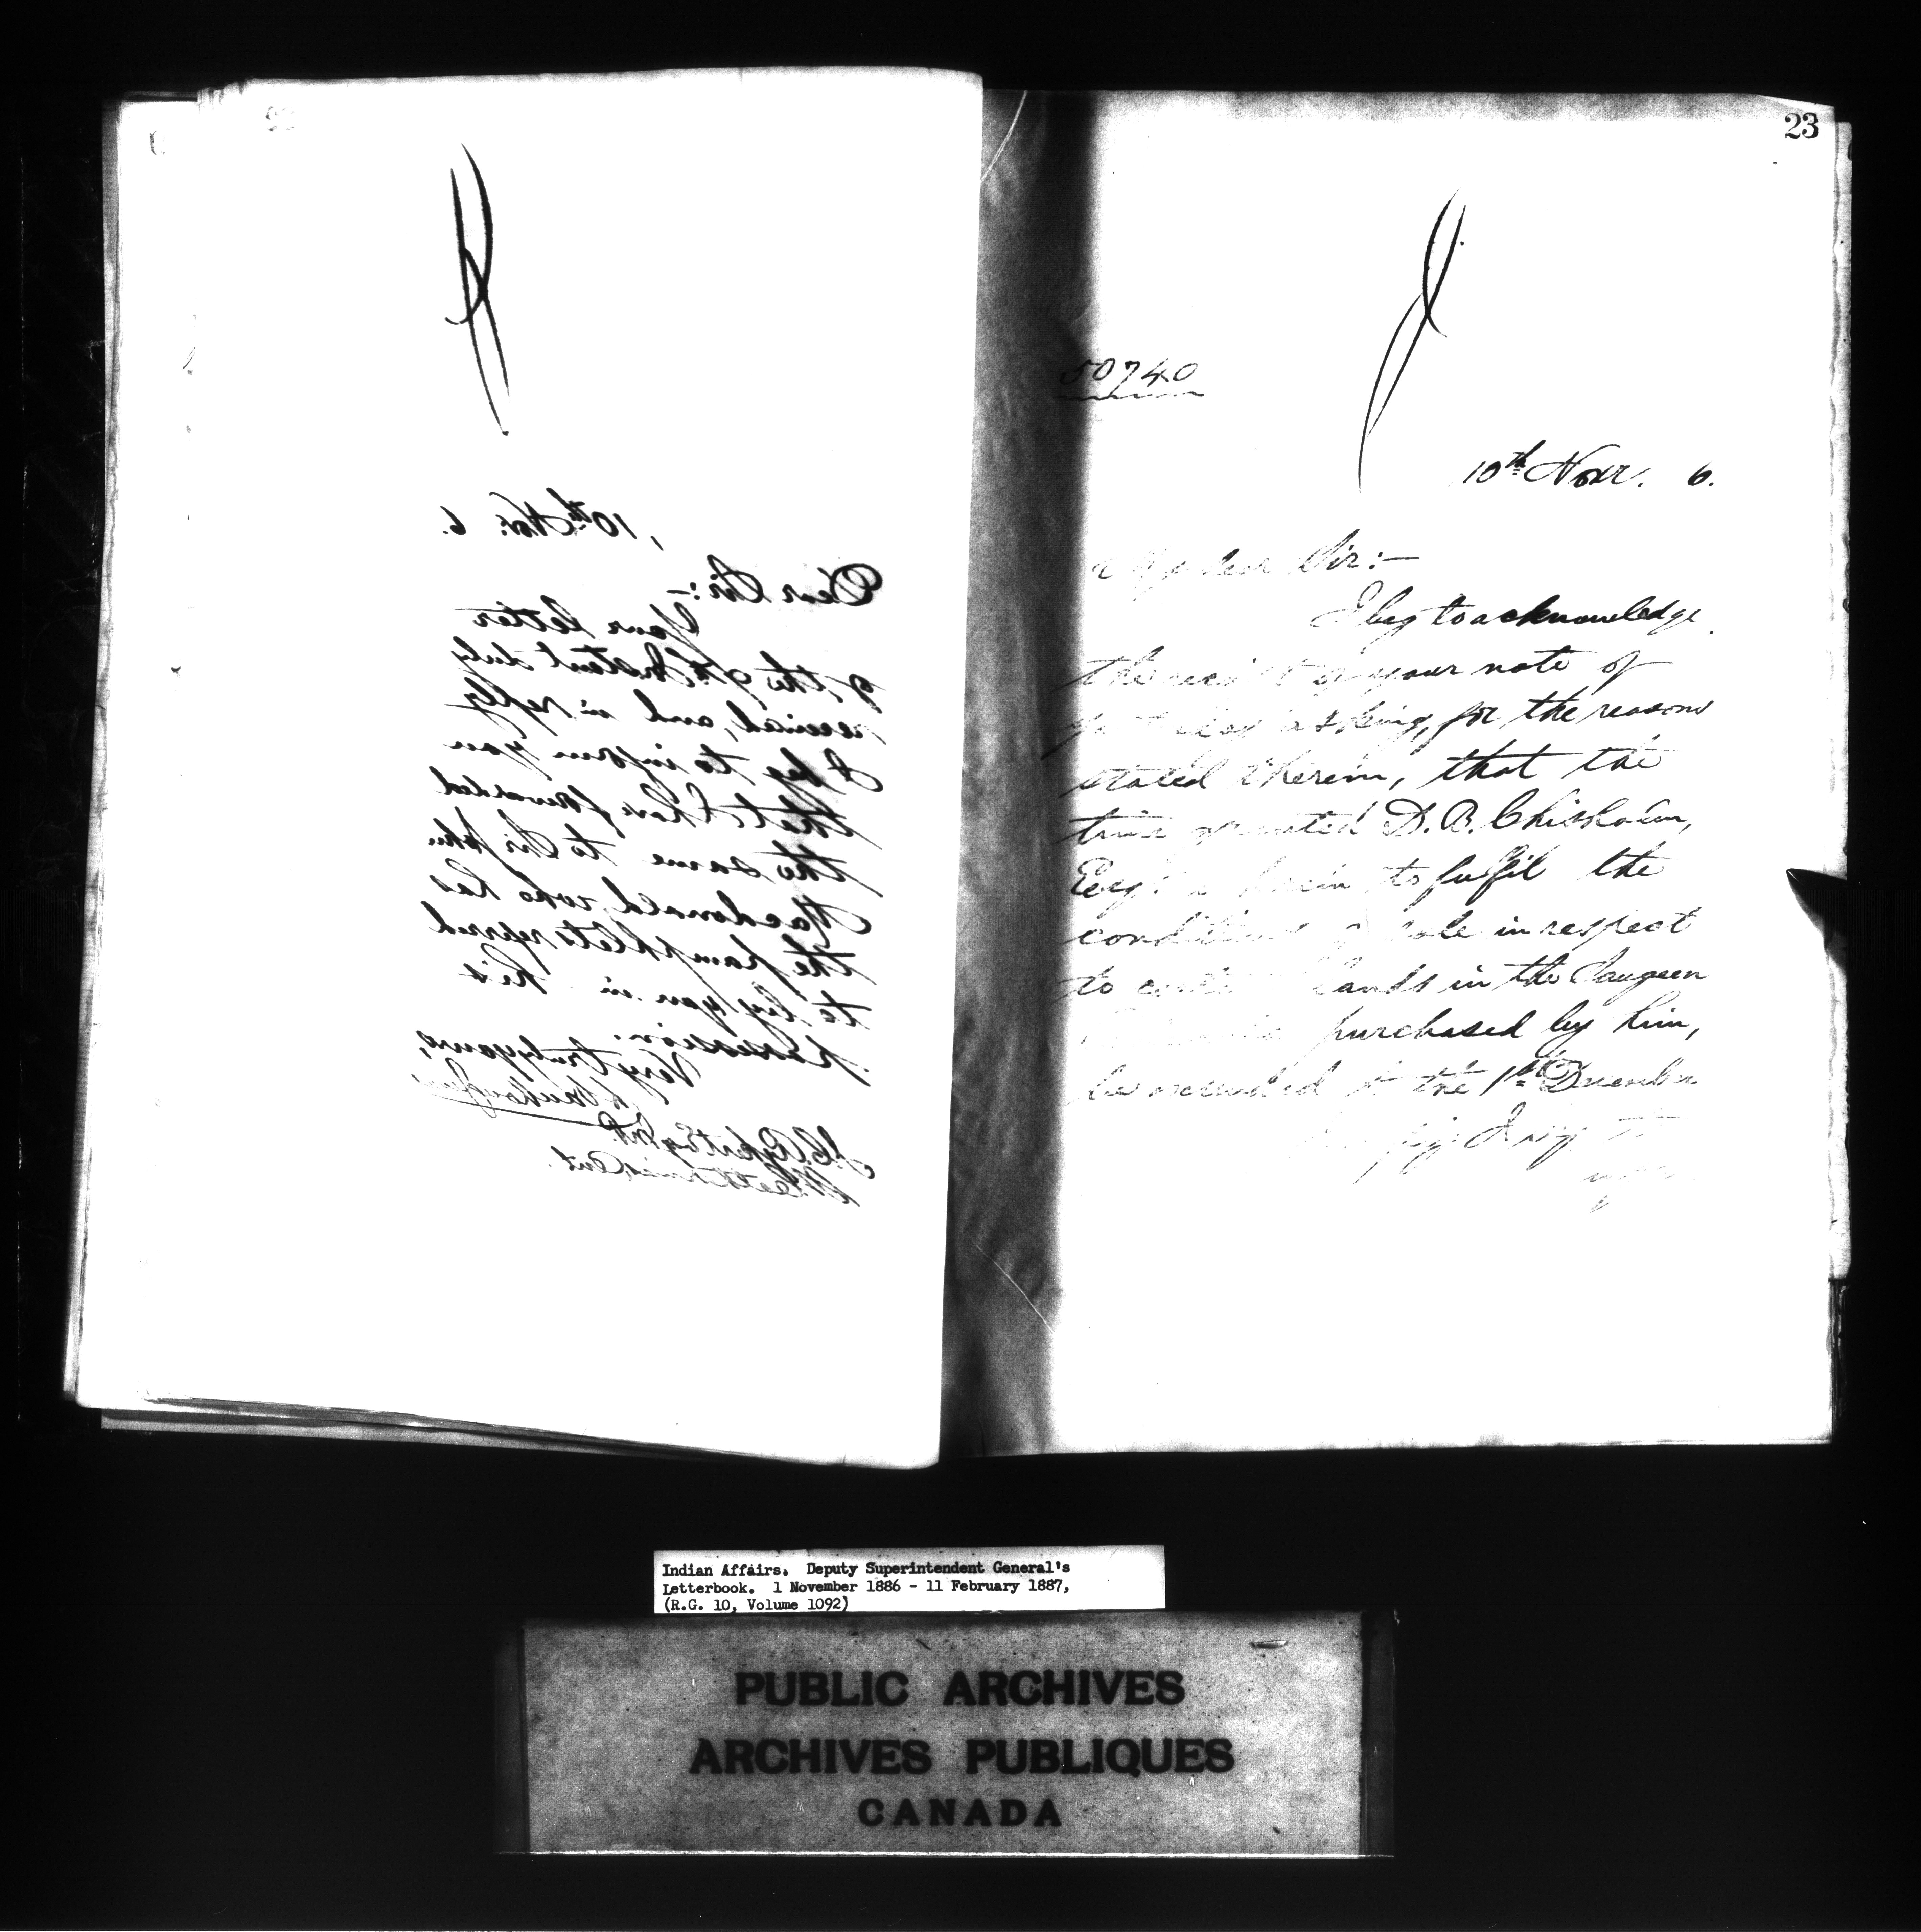 10th Nov. 6.
Dear Sir:-
Your letter
of the 9th Instant duly
received, and in reply
I beg to inform you
that I have forwarded
the same to Sir John
Macdonald, who has
the pamphlets referred
to by you in his
possession.
Very truly yours,
Esq M.P.
Ont.
23
50740
10th Novr. 6.
My dear Sir:-
I beg to acknowledge
the receipt of your note of
yesterday asking, for the reasons
stated therein, that the
time granted D. B. Chisholm,
Esq to fulfil the
conditions of sale in respect
to certain lands in the Saugeen
purchased by him,
be extended to the 1st December
I beg to
Indian Affairs. Deputy Superintendent General's
Letterbook. 1 November 1886 - 11 February 1887,
(R.G. 10, Volume 1092)
PUBLIC ARCHIVES
ARCHIVES PUBLIQUES
CANADA